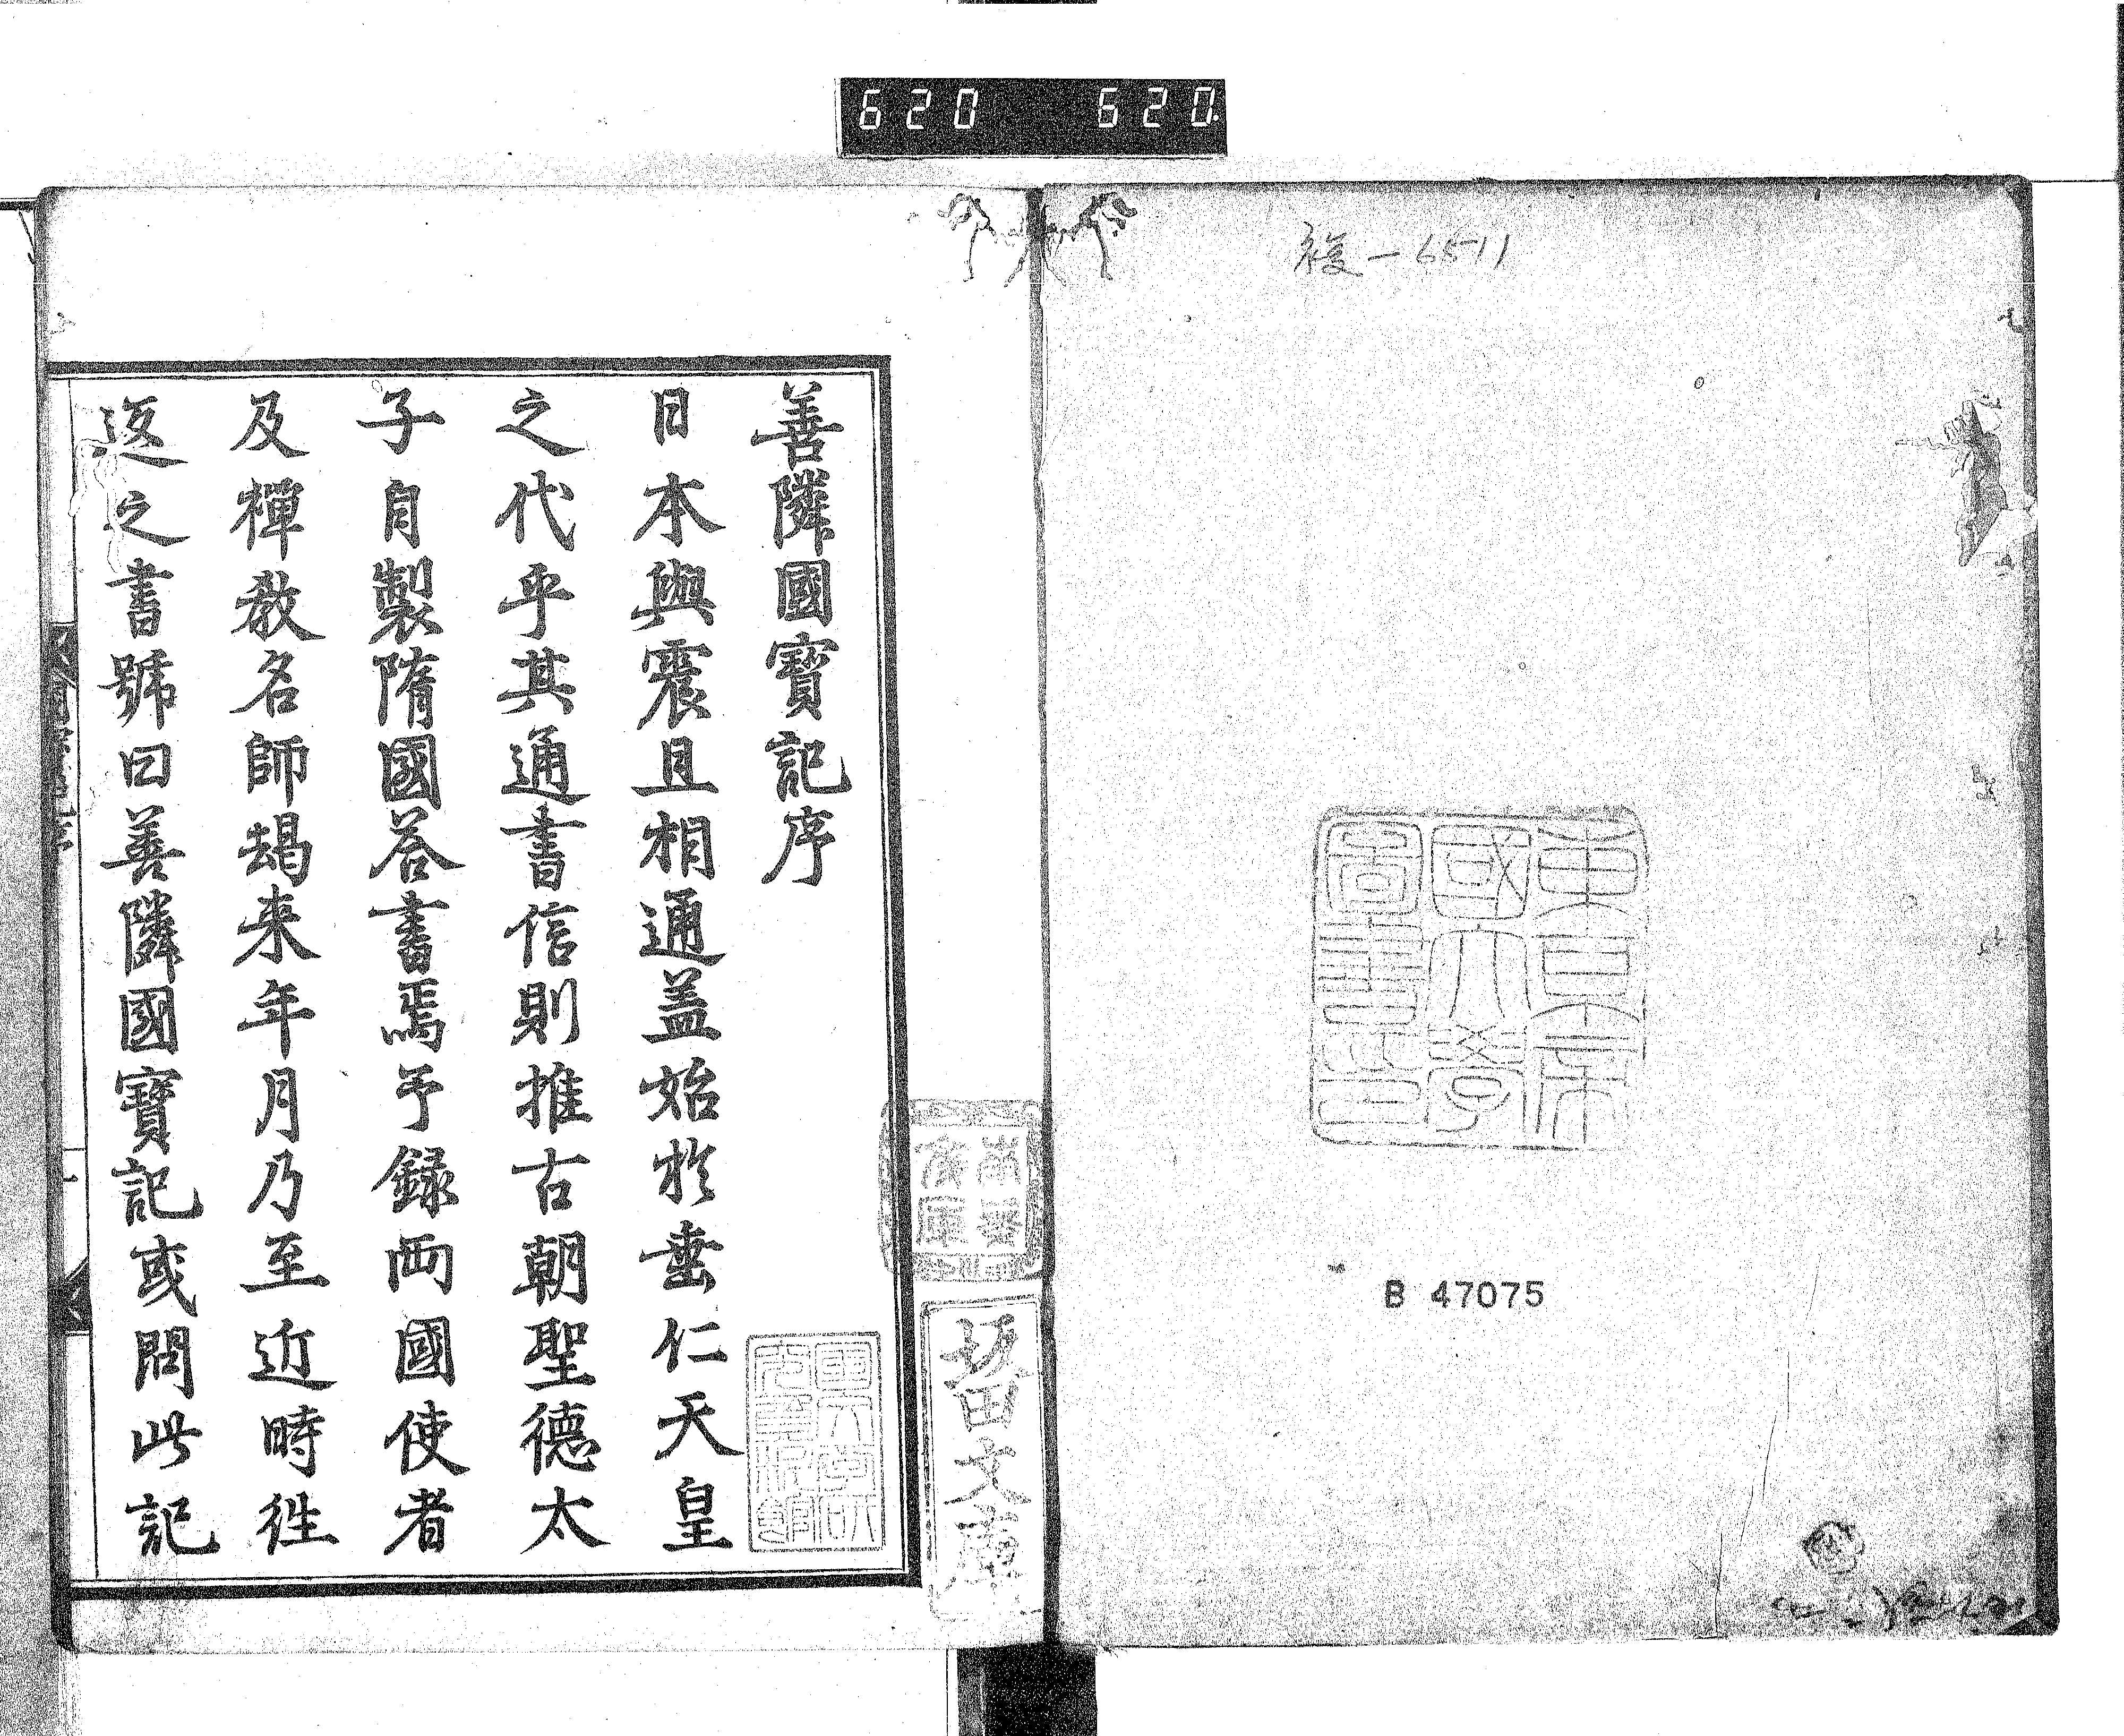 620 620
複－6511
東京帝
國大學
圖書印
B 47075
南葵
文庫
阪田文庫
善隣國寳記序
日本與震旦相通盖始於垂仁天皇
之代乎其通書信則推古朝聖德太
子自製隋國荅書焉予録兩國使者
及禪教名師朅来年月乃至近時徃
返之書號曰善隣國寳記或問此記